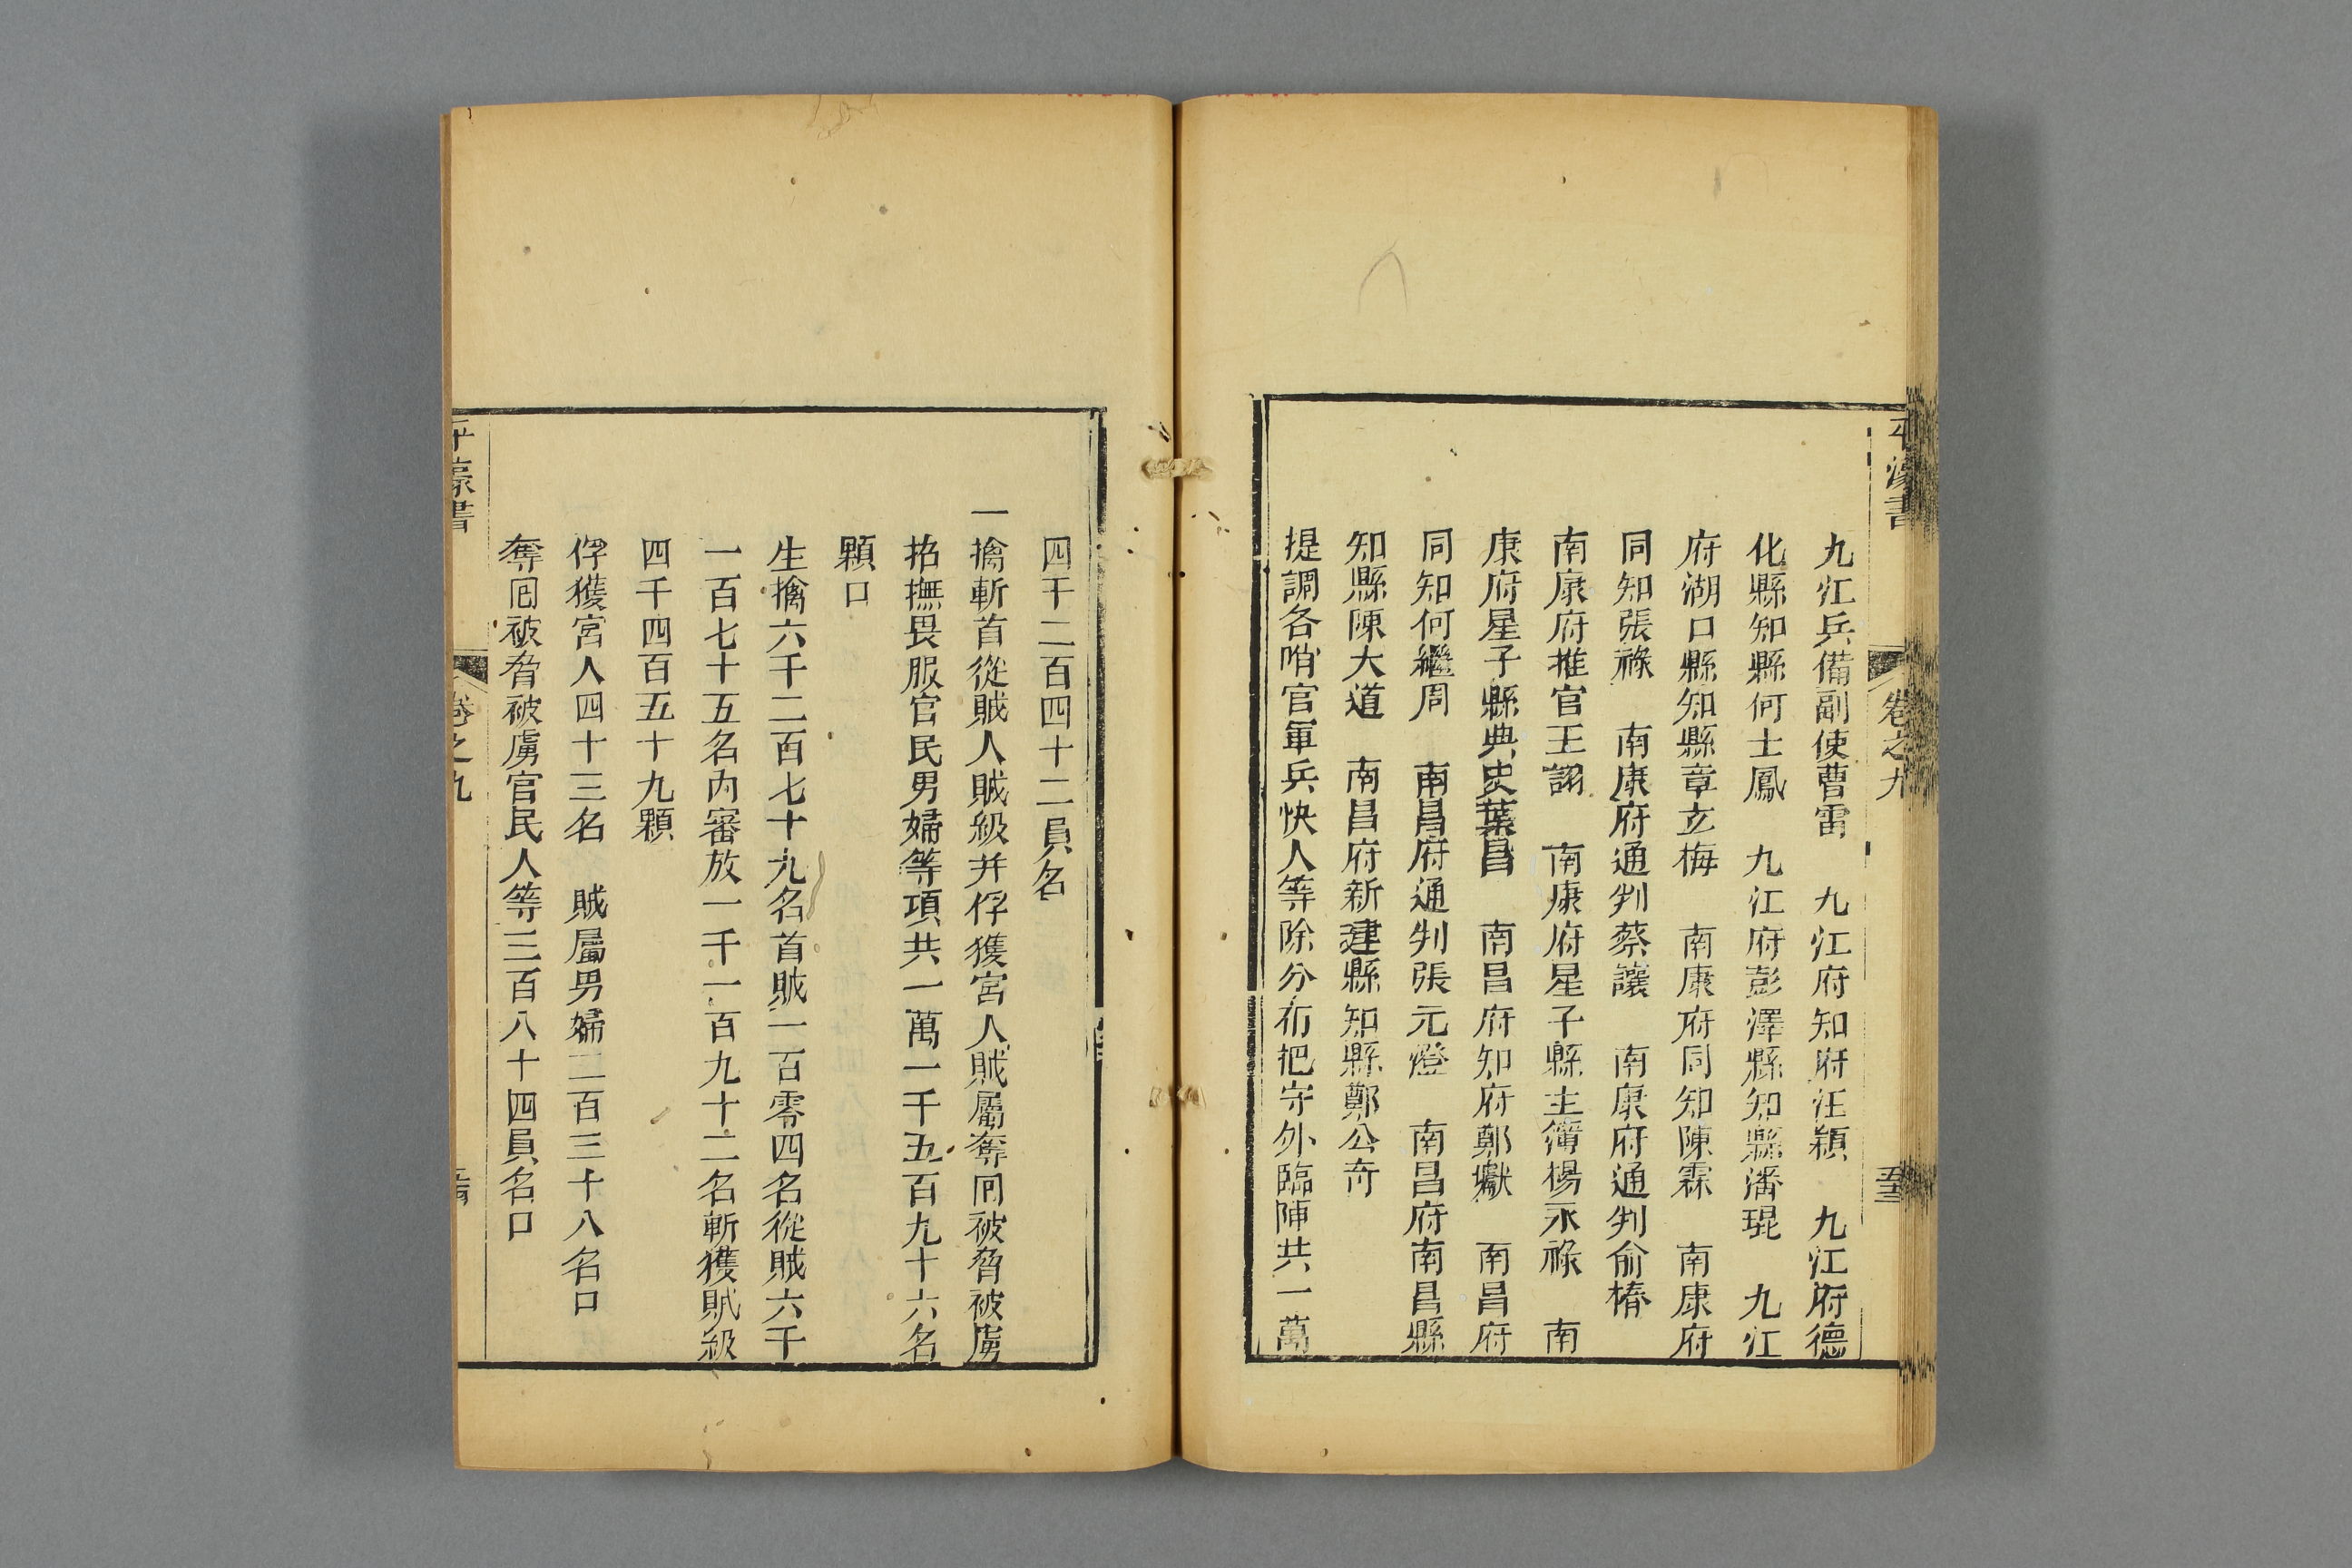 平濠書
卷之九
九江兵備副使曹雷　九江府知府汪穎　九江府德
化縣知縣何士鳳　九江府彭澤縣知縣潘琨　九江
府湖口縣知縣章玄梅　南康府同知陳霖　南康府
同知張祿　南康府通判蔡讓　南康府通判俞椿
南康府推官王詡　南康府星子縣主簿楊永祿　南
康府星子縣典史葉昌　南昌府知府鄭瓛　南昌府
同知何繼周　南昌府通判張元燈　南昌府南昌縣
知縣陳大道　南昌府新建縣知縣鄭公奇
提調各哨官軍兵快人等除分布把守外臨陣共一萬
四千二百四十二員名
一擒斬首從賊人賊級并俘獲宮人賊屬奪囘被脅被虜
招撫畏服官民男婦等項共一萬一千五百九十六名
顆口
生擒六千二百七十九名首賊一百零四名從賊六千
一百七十五名內審放一千一百九十二名斬獲賊級
四千四百五十九顆
俘獲宮人四十三名　賊屬男婦二百三十八名口
奪囘被脅被虜官民人等三百八十四員名口
平濠書
卷之九